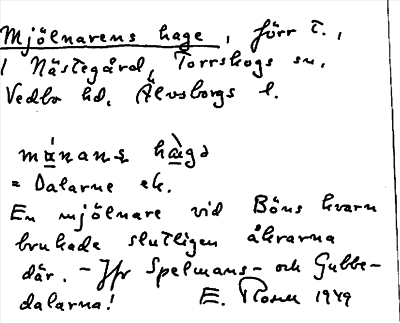 Mjölnarens hage, förr t.,
i Nästegård, Torrskogs sn.,
Vedbo hd, Älvsborgs l.
mànans hàgə
= Dalarne ek.
En mjölnare vid Böns kvarn
brukade slutligen åkrarna
där. – Jfr Spelmans- och Gubbe-
dalarna! E. Rosell 1949